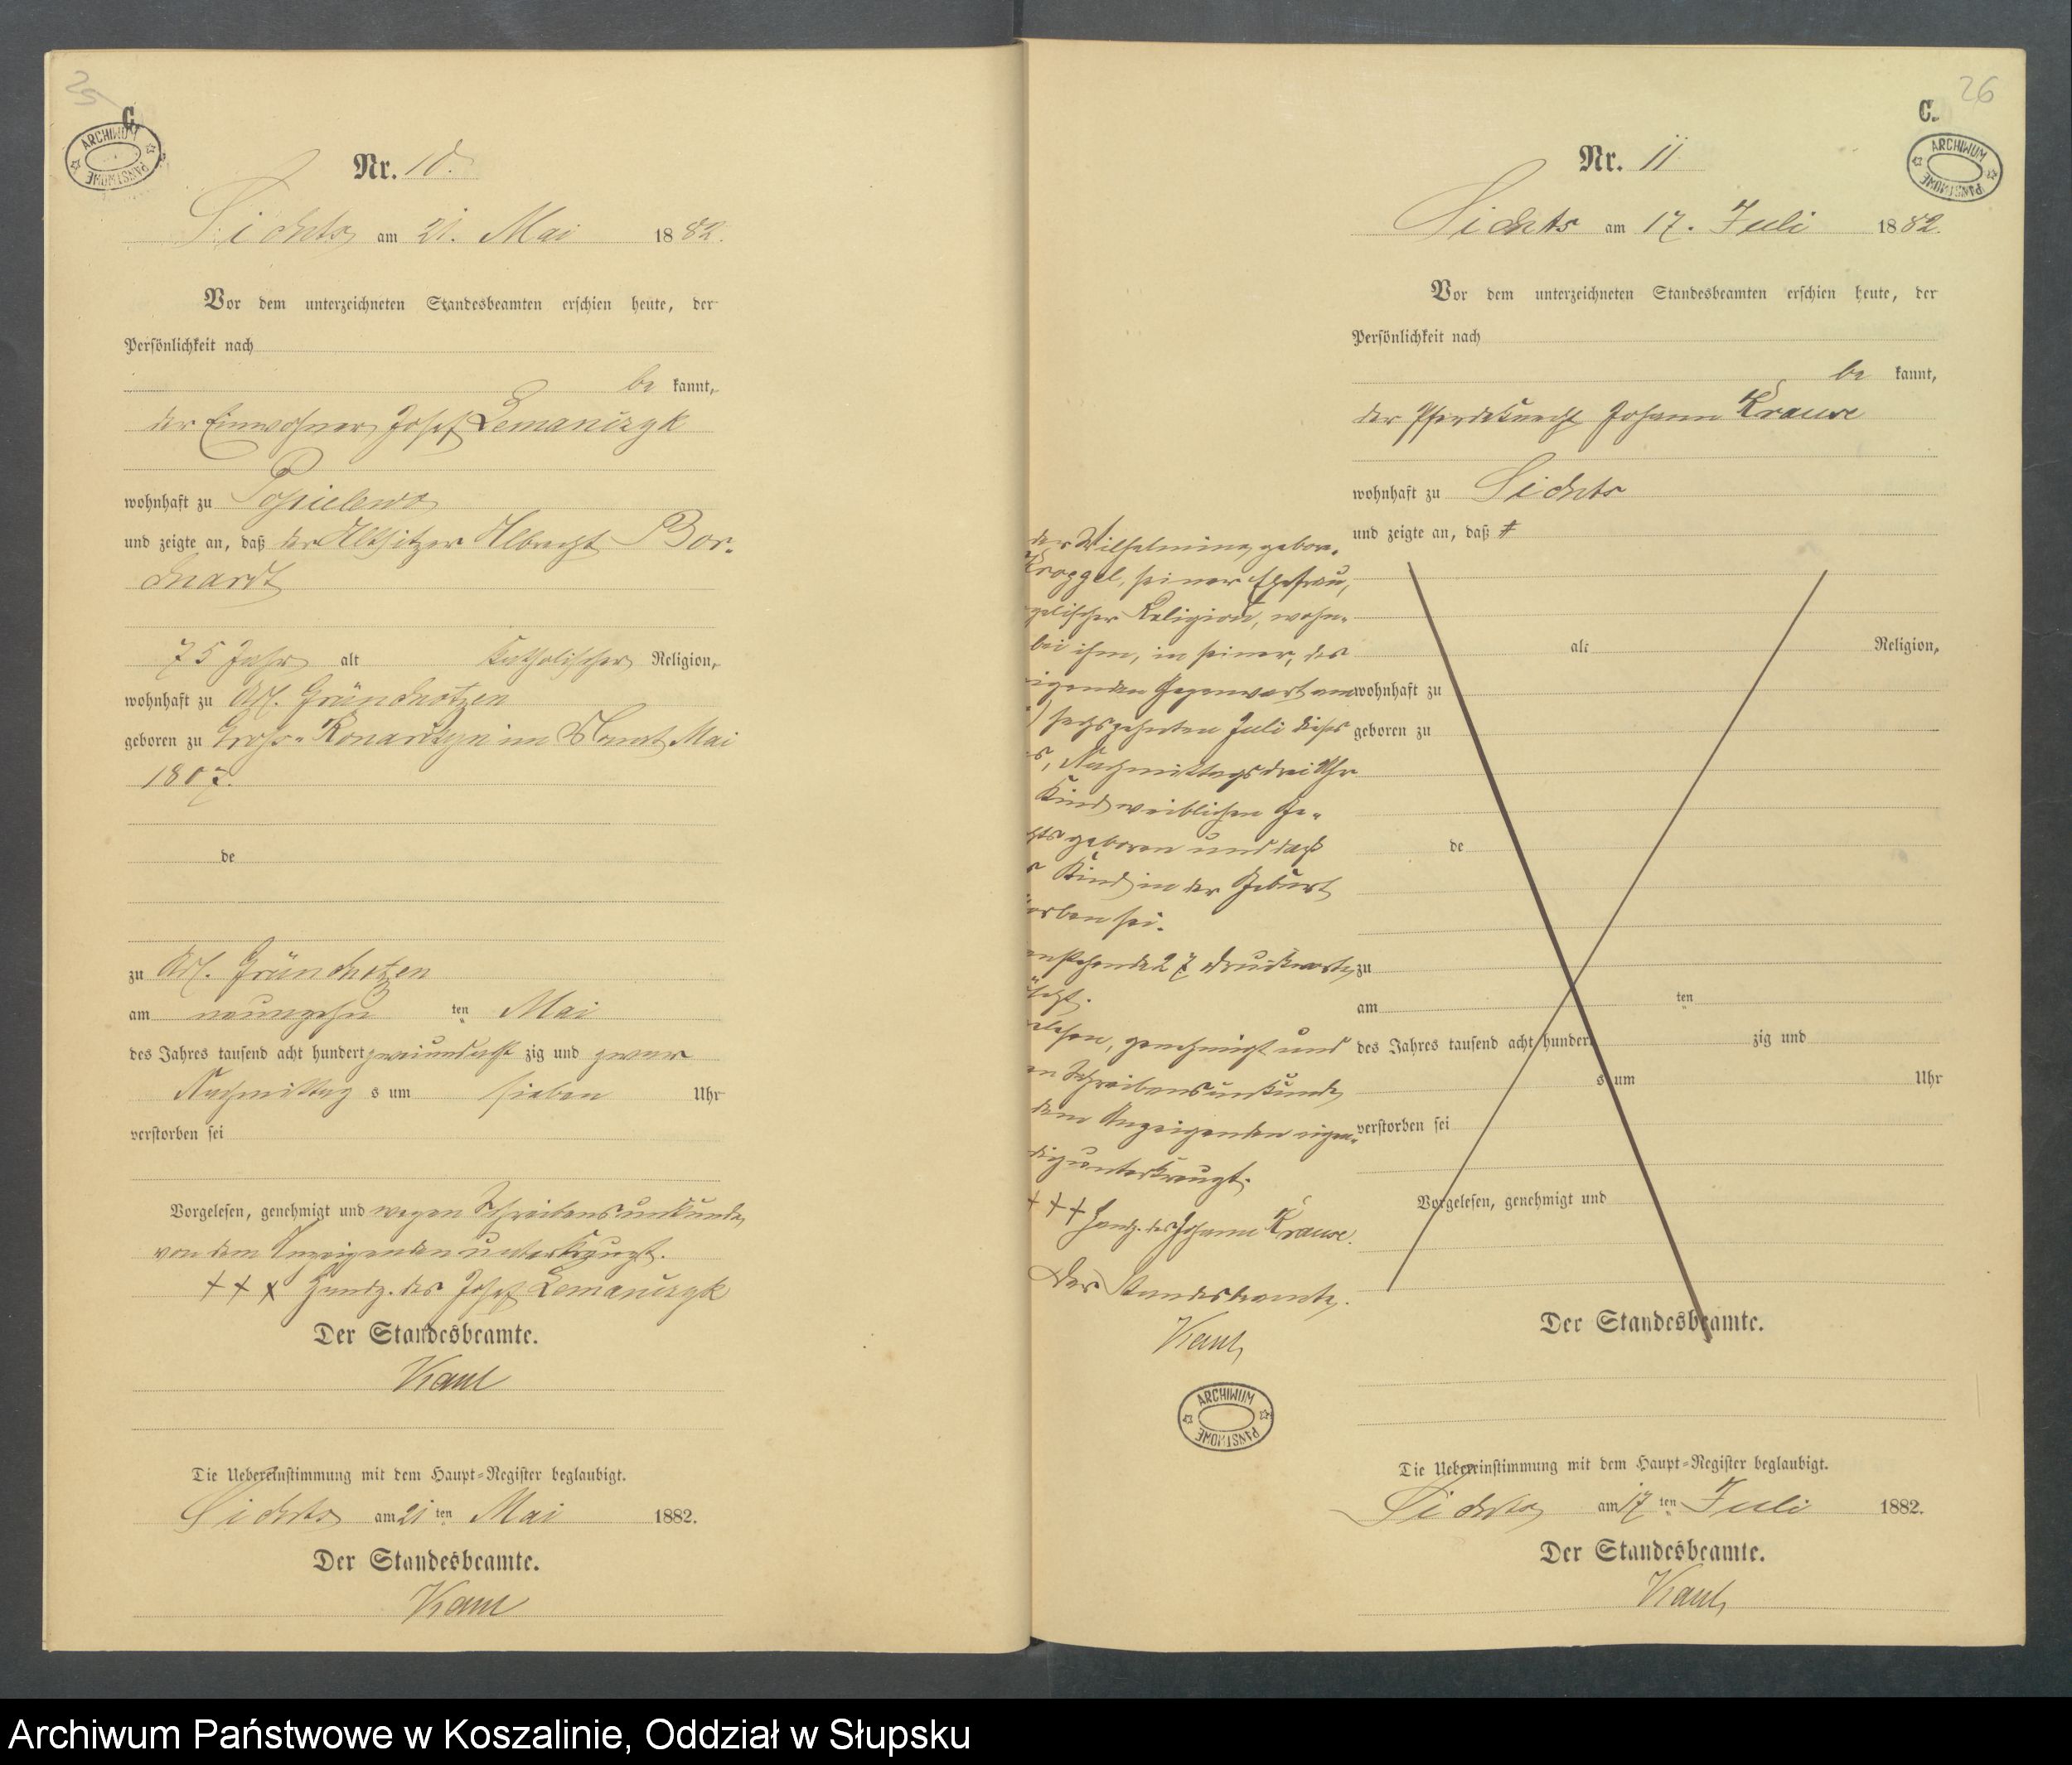 25
C.
ARCHIWUM PAŃSTWOWE
Nr. 10.
Sichts am 21. Mai 1882.
Vor dem unterzeichneten Standesbeamten erschien heute, der
Persönlichkeit nach
be kannt,
der Einwohner Josef Lemanczyk
wohnhaft zu Pospielewo
und zeigte an, daß der Altsitzer Albrecht Bor-
chardt
75 Jahr alt katholischer Religion,
wohnhaft zu Grünchotzen
geboren zu Gross-Konarczyn im Monat Mai
1807.
de
zu Grünchotzen
am neunzehn ten Mai
des Jahres tausend acht hundert zweiundacht zig und zwar
Nachmittag s um sieben Uhr
verstorben sei
Vorgelesen, genehmigt und wegen Schreibensunkunde
von dem Anzeigenden unterkreuzt.
+ + + Handz. des Josef Lemanczyk
Der Standesbeamte.
Kaul
Die Uebereinstimmung mit dem Haupt-Register beglaubigt.
Sichts am 21 ten Mai 1882.
Der Standesbeamte.
Kaul
26
C.
ARCHIWUM PAŃSTWOWE
Nr. 11
Sichts am 17. Juli 1882.
Vor dem unterzeichneten Standesbeamten erschien heute, der
Persönlichkeit nach
be kannt,
der Pferdeknecht Johann Krause
wohnhaft zu Sichts
und zeigte an, daß
alt Religion,
wohnhaft zu
geboren zu
de
zu
am ten
des Jahres tausend acht hundert zig und
s um Uhr
verstorben sei
Vorgelesen, genehmigt und
Der Standesbeamte.
der Wilhelmine, gebore-
Kroggel, seiner Ehefrau,
gelischer Religion, wohn-
bei ihm, in seiner, des
igenden Gegenwart am
sechszehnten Juli dieses
s, Nachmittags drei Uhr
Kind weiblichen Ge-
hts geboren und daß
s Kind in der Geburt
orben sei.
enstehende 27 Druckworte
elesen, genehmigt und
en Schreibensunkunde
dem Anzeigenden eigen-
dig unterkreuzt.
+ + + Handz. des Johann Krause.
Der Standesbeamte.
Kaul
ARCHIWUM PAŃSTWOWE
Die Uebereinstimmung mit dem Haupt-Register beglaubigt.
Sichts am 17 ten Juli 1882.
Der Standesbeamte.
Kaul
Archiwum Państwowe w Koszalinie, Oddział w Słupsku